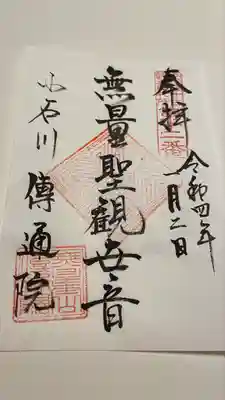 奉拝
令和四年
一月二日
無量聖観世音
小石川
傳通院